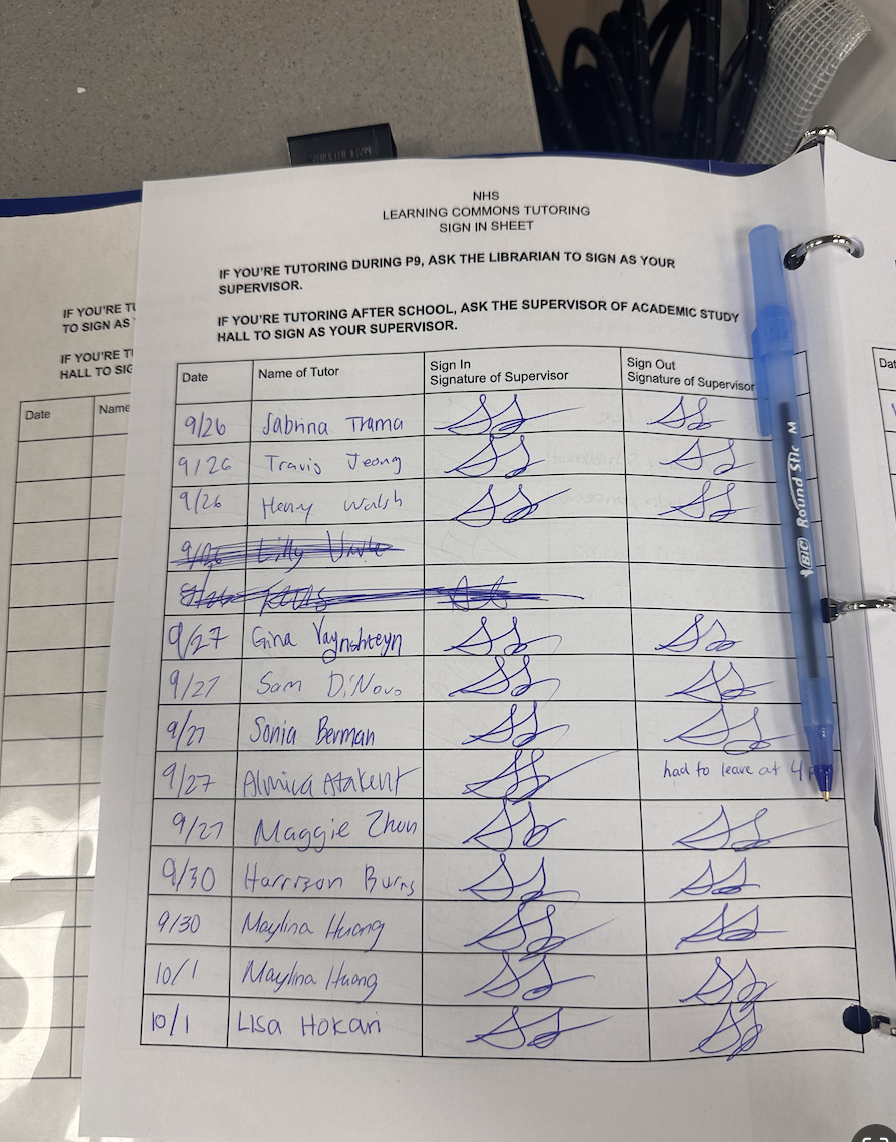 NHS
LEARNING COMMONS TUTORING
SIGN IN SHEET
IF YOU'RE TUTORING DURING P9, ASK THE LIBRARIAN TO SIGN AS YOUR
SUPERVISOR.
IF YOU'RE TUTORING AFTER SCHOOL, ASK THE SUPERVISOR OF ACADEMIC STUDY
HALL TO SIGN AS YOUR SUPERVISOR.
Date Name of Tutor Sign In Signature of Supervisor Sign Out Signature of Supervisor
9/26 Sabrina Trama
9/26 Travis Jeong
9/26 Henry Walsh
9/26 Lilly
9/27 Gina Vaynshteyn
9/27 Sam DiNovo
9/27 Sonia Berman
9/27 Atakent had to leave at 4
9/27 Maggie Zhun
9/30 Harrison Burns
9/30 Maylina Huang
10/1 Maylina Huang
10/1 Lisa Hokari
IF YOU'RE TU
TO SIGN AS
IF YOU'RE T
HALL TO SIG
Date Name
Dat
BIC Round Stic M